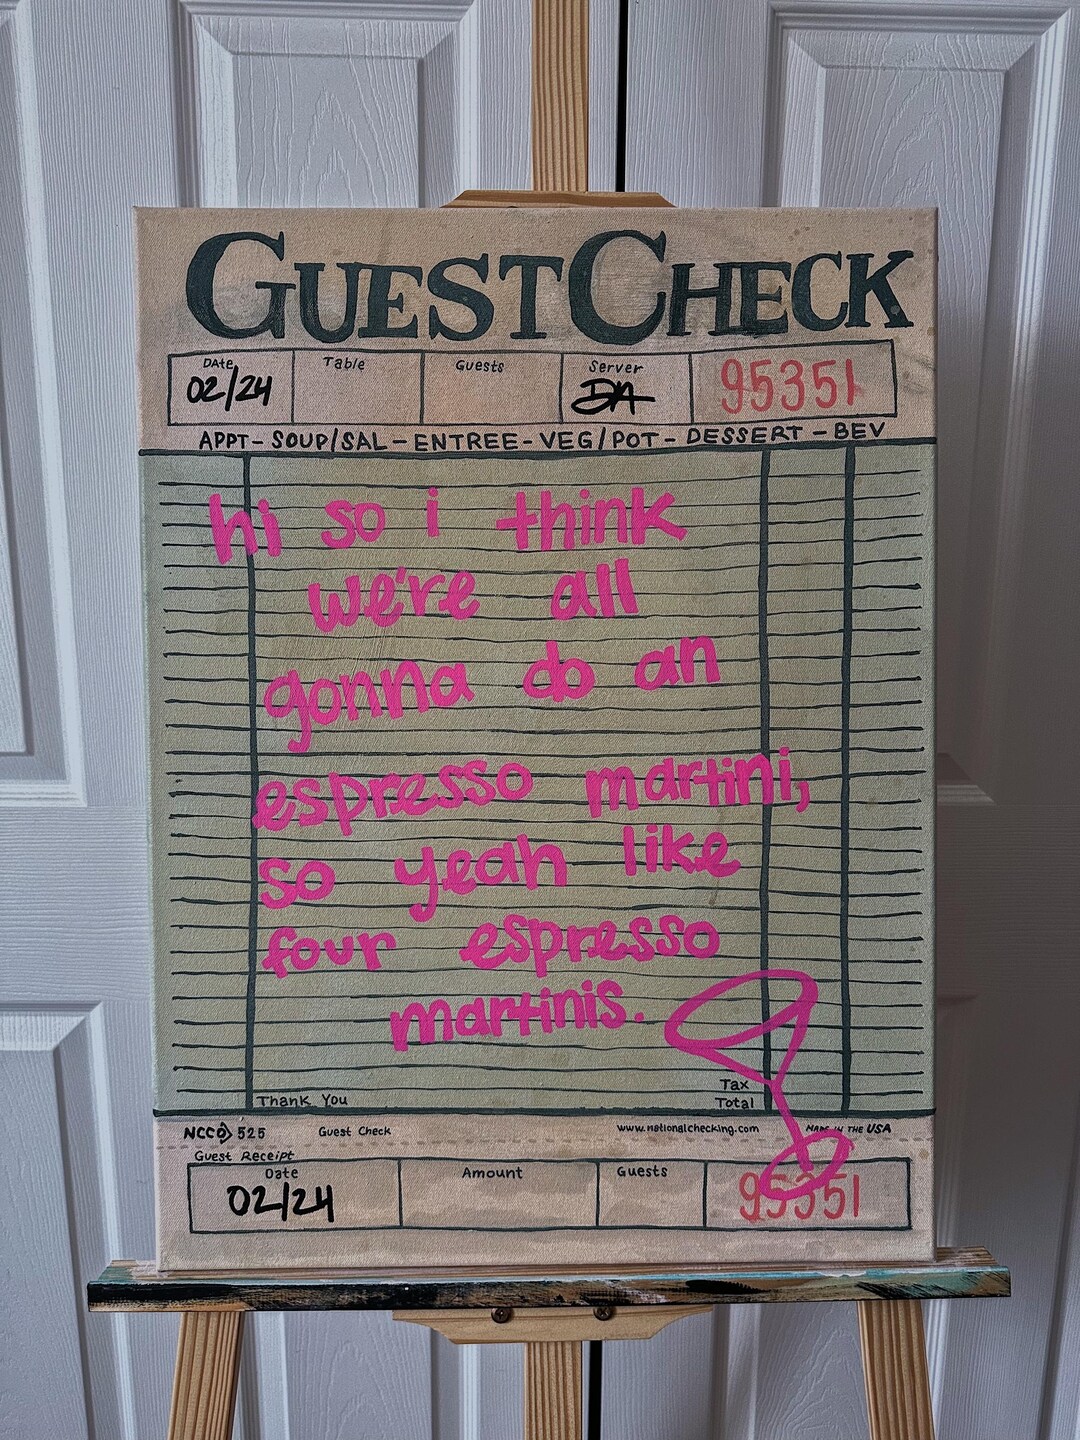 GUESTCHECK
Date Table Guests Server 95351
02/24 DA
APPT - SOUP/SAL - ENTREE - VEG/POT - DESSERT - BEV
hi so i think
we're all
gonna do an
espresso martini,
so yeah like
four espresso
martinis.
Tax
Thank You Total
NCCO 525 Guest Check www.nationalchecking.com MADE IN THE USA
Guest Receipt
Date Amount Guests 95351
02/24